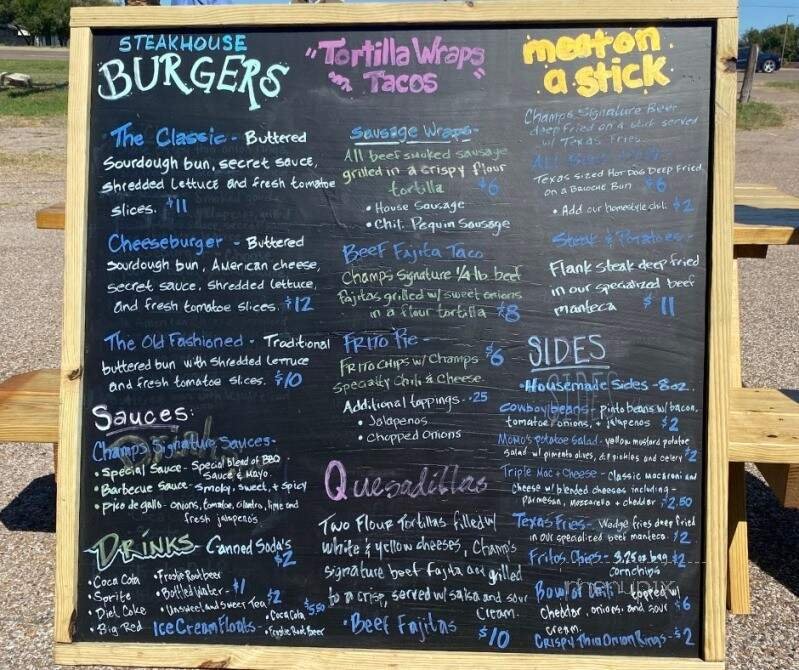 STEAKHOUSE
BURGERS
The Classic - Buttered
Sourdough bun, secret sauce,
shredded Lettuce and fresh tomatoe
slices. $11
Cheeseburger - Buttered
sourdough bun, American cheese,
secret sauce, shredded lettuce,
and fresh tomatoe slices. $12
The Old Fashioned - Traditional
buttered bun with shredded Lettuce
and fresh tomatoe slices. $10
Sauces:
Champs Signature Sauces -
• Special Sauce - Special blend of BBQ
Sauce & Mayo
• Barbecue Sauce - smoky, sweet, & spicy
• pico de gallo - onions, tomatoe, cilantro, lime and
fresh jalapeños
DRINKS - Canned Soda's
$2
• Coca Cola
• Sprite
• Diet Coke
• Big Red
• Frostie Root beer
• Bottled Water - $1
• Unsweet and Sweet Tea $2
Ice Cream Floats - • Coca Cola $5.50
• Frostie Root Beer
"Tortilla Wraps
n Tacos"
Sausage Wraps -
All beef smoked sausage
grilled in a crispy flour
tortilla $6
• House Sausage
• Chil. Pequin Sausage
Beef Fajita Taco
Champs Signature 1/4 lb. beef
Fajitas grilled w/ sweet onions
in a flour tortilla $8
Frito Pie -
Frito chips w/ Champs $6
Specialty Chili & Cheese.
Additional toppings - .25
• Jalapenos
• Chopped Onions
Quesadillas
Two Flour Tortillas filled w/
white & yellow cheeses, Champ's
signature beef fajita are grilled
to a crisp, served w/ salsa and sour
cream.
• Beef Fajitas $10
meat on
a stick
Champs Signature Beer
deep fried on a stick served
w/ Texas Fries
All Beef
Texas sized Hot Dog Deep Fried
on a Brioche Bun $6
• Add our homestyle chili $2
Steak & Potatoes -
Flank steak deep fried
in our specialized beef
manteca $11
SIDES
• Housemade Sides - 8oz.
Cowboy beans - pinto beans w/ bacon,
tomatoe, onions, & jalapenos $2
Momo's potatoe Salad - yellow mustard potatoe
salad w/ pimento olives, dill pickles and celery $2
Triple Mac & Cheese - Classic macaroni and
cheese w/ blended cheeses including -
parmesan, mozzarella & cheddar $2.50
Texas Fries - Wedge fries deep fried
in our specialized beef manteca $2
Fritos Chips - 9.25oz bag $2
cornchips
Bowl of Chili - topped w/
cheddar, onions, and sour $6
cream
Crispy Thin Onion Rings - $2
menupix